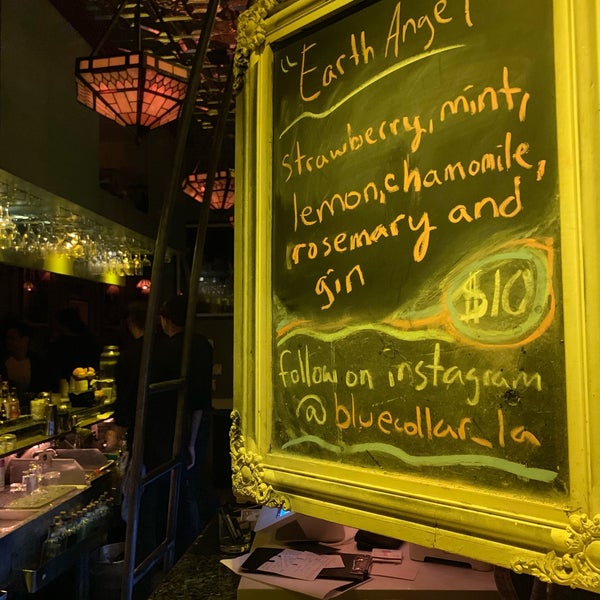 "Earth Angel
strawberry, mint,
lemon, chamomile,
rosemary and
gin
$10
follow on instagram
@bluecollar_la